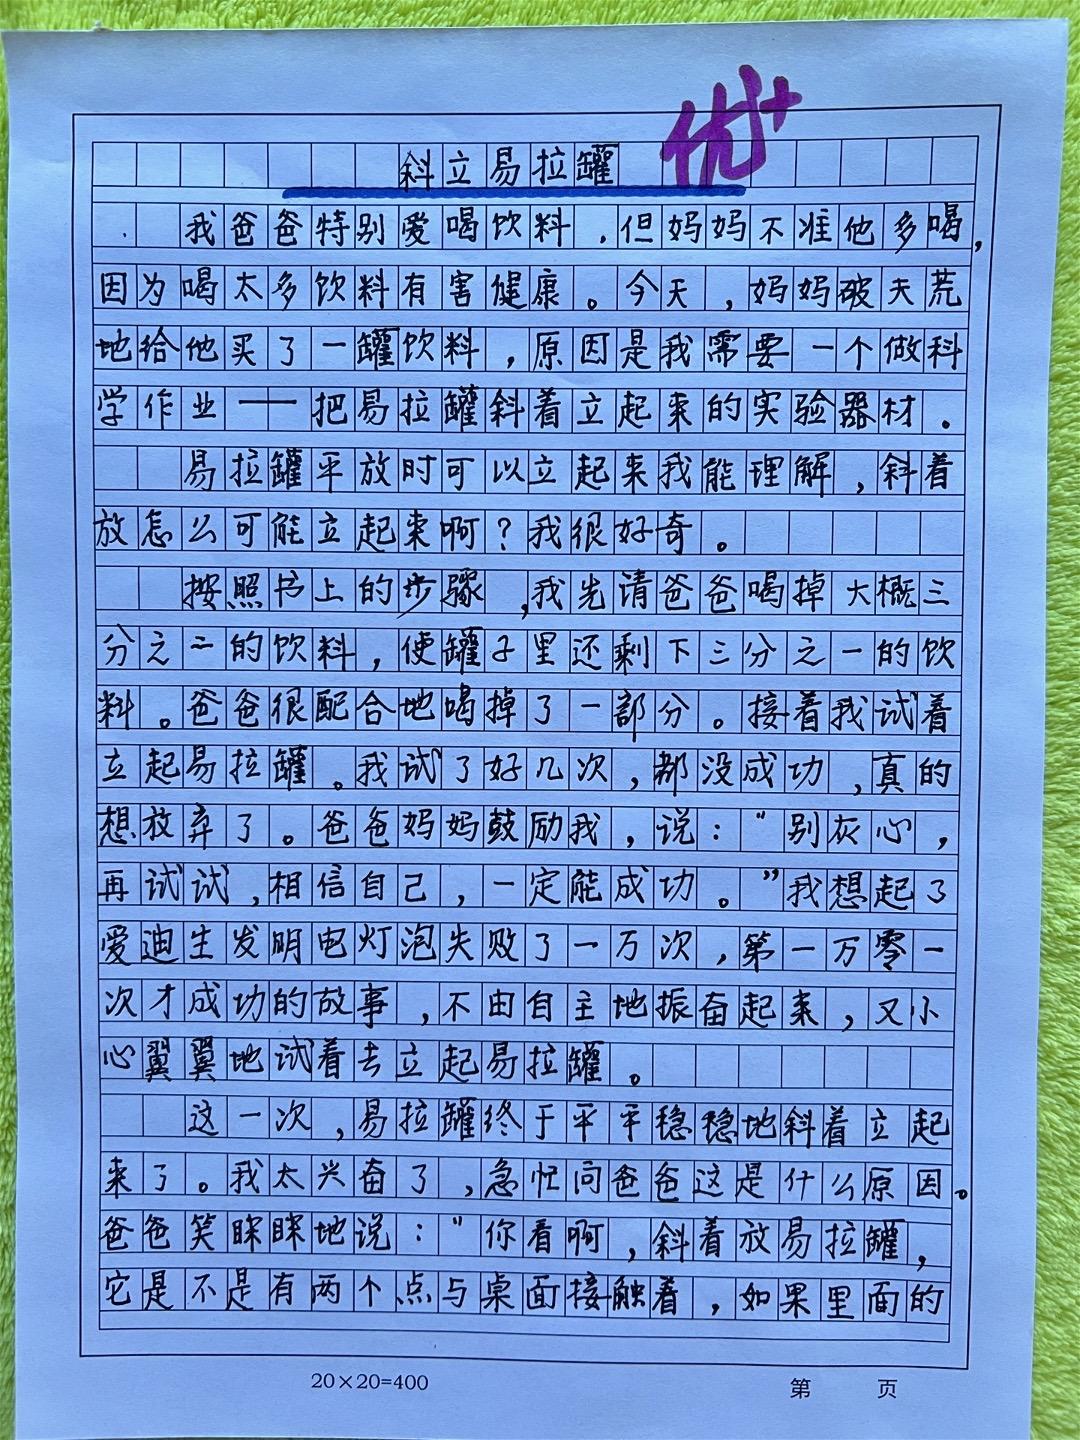 斜立易拉罐
优+
我爸爸特别爱喝饮料,但妈妈不准他多喝,
因为喝太多饮料有害健康。今天,妈妈破天荒
地给他买了一罐饮料,原因是我需要一个做科
学作业——把易拉罐斜着立起来的实验器材。
易拉罐平放时可以立起来我能理解,斜着
放怎么可能立起来啊?我很好奇。
按照书上的步骤,我先请爸爸喝掉大概三
分之二的饮料,使罐子里还剩下三分之一的饮
料。爸爸很配合地喝掉了一部分。接着我试着
立起易拉罐。我试了好几次,都没成功,真的
想放弃了。爸爸妈妈鼓励我,说:“别灰心,
再试试,相信自己,一定能成功。”我想起了
爱迪生发明电灯泡失败了一万次,第一万零一
次才成功的故事,不由自主地振奋起来,又小
心翼翼地试着去立起易拉罐。
这一次,易拉罐终于平平稳稳地斜着立起
来了。我太兴奋了,急忙问爸爸这是什么原因。
爸爸笑眯眯地说:“你看啊,斜着放易拉罐,
它是不是有两个点与桌面接触着,如果里面的
20×20=400
第 页